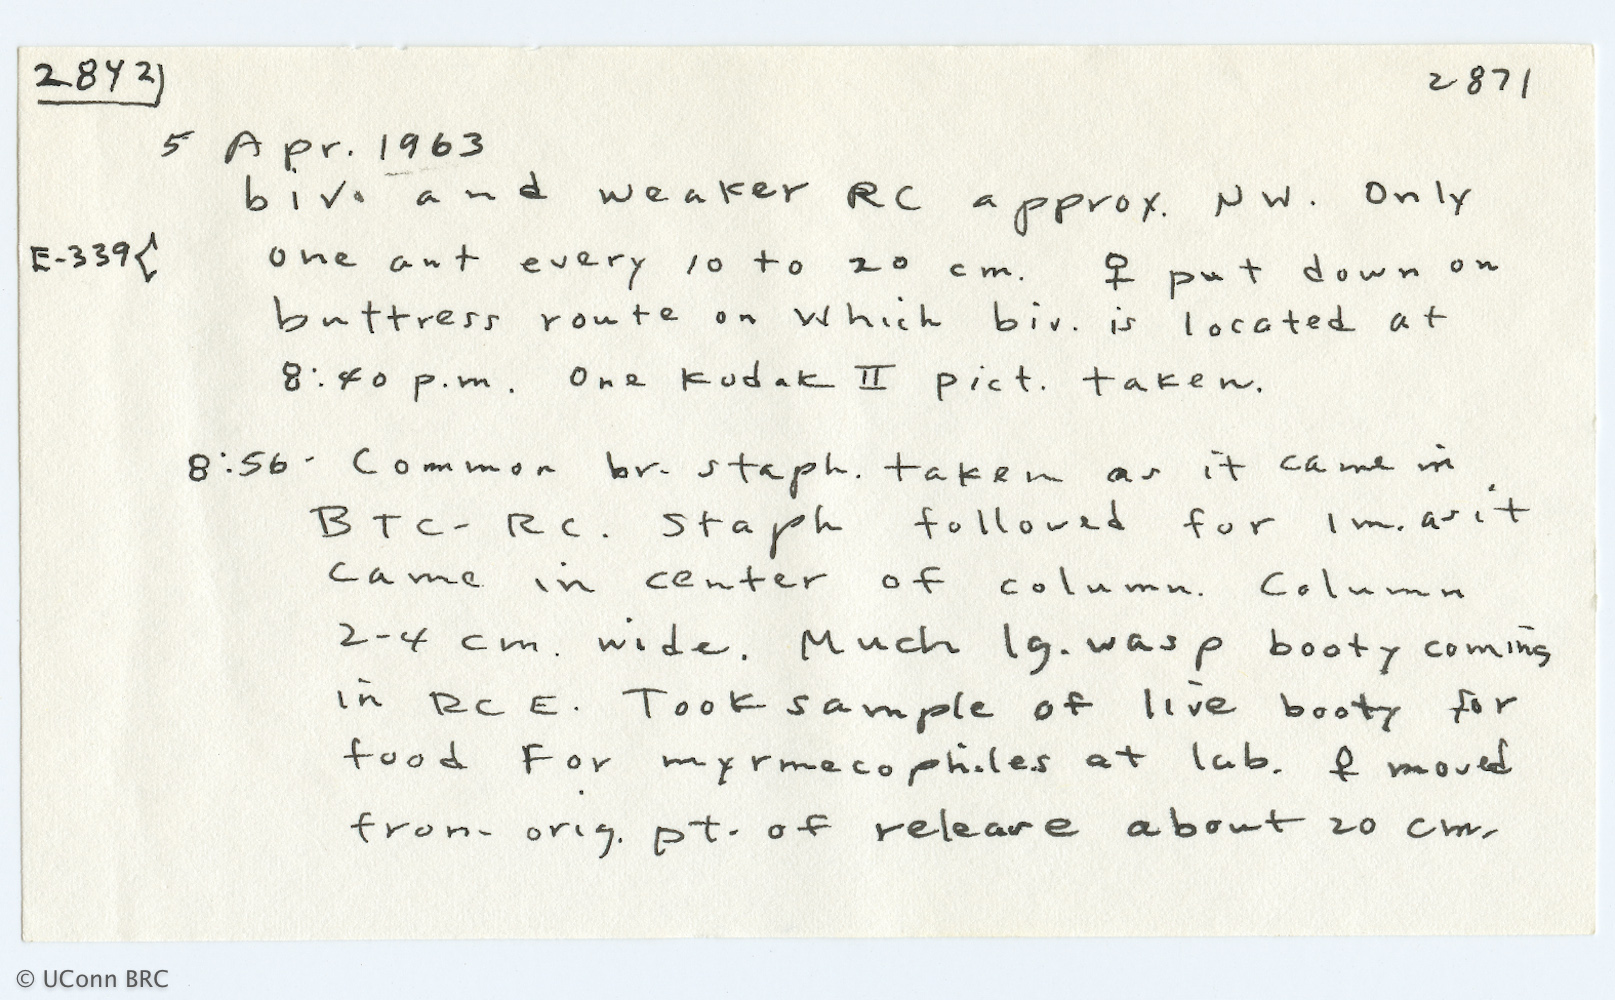 2842)
2871
5 Apr. 1963
biv. and weaker RC approx. NW. Only
E-339{ one ant every 10 to 20 cm. ♀ put down on
buttress route on which biv. is located at
8:40 p.m. One Kodak II pict. taken.
8:56- Common br. staph. taken as it came in
BTC-RC. Staph followed for 1m. as it
came in center of column. Column
2-4 cm. wide. Much lg. wasp booty coming
in RC E. Took sample of live booty for
food For myrmecophiles at lab. ♀ moved
from orig. pt. of release about 20 cm.
© UConn BRC